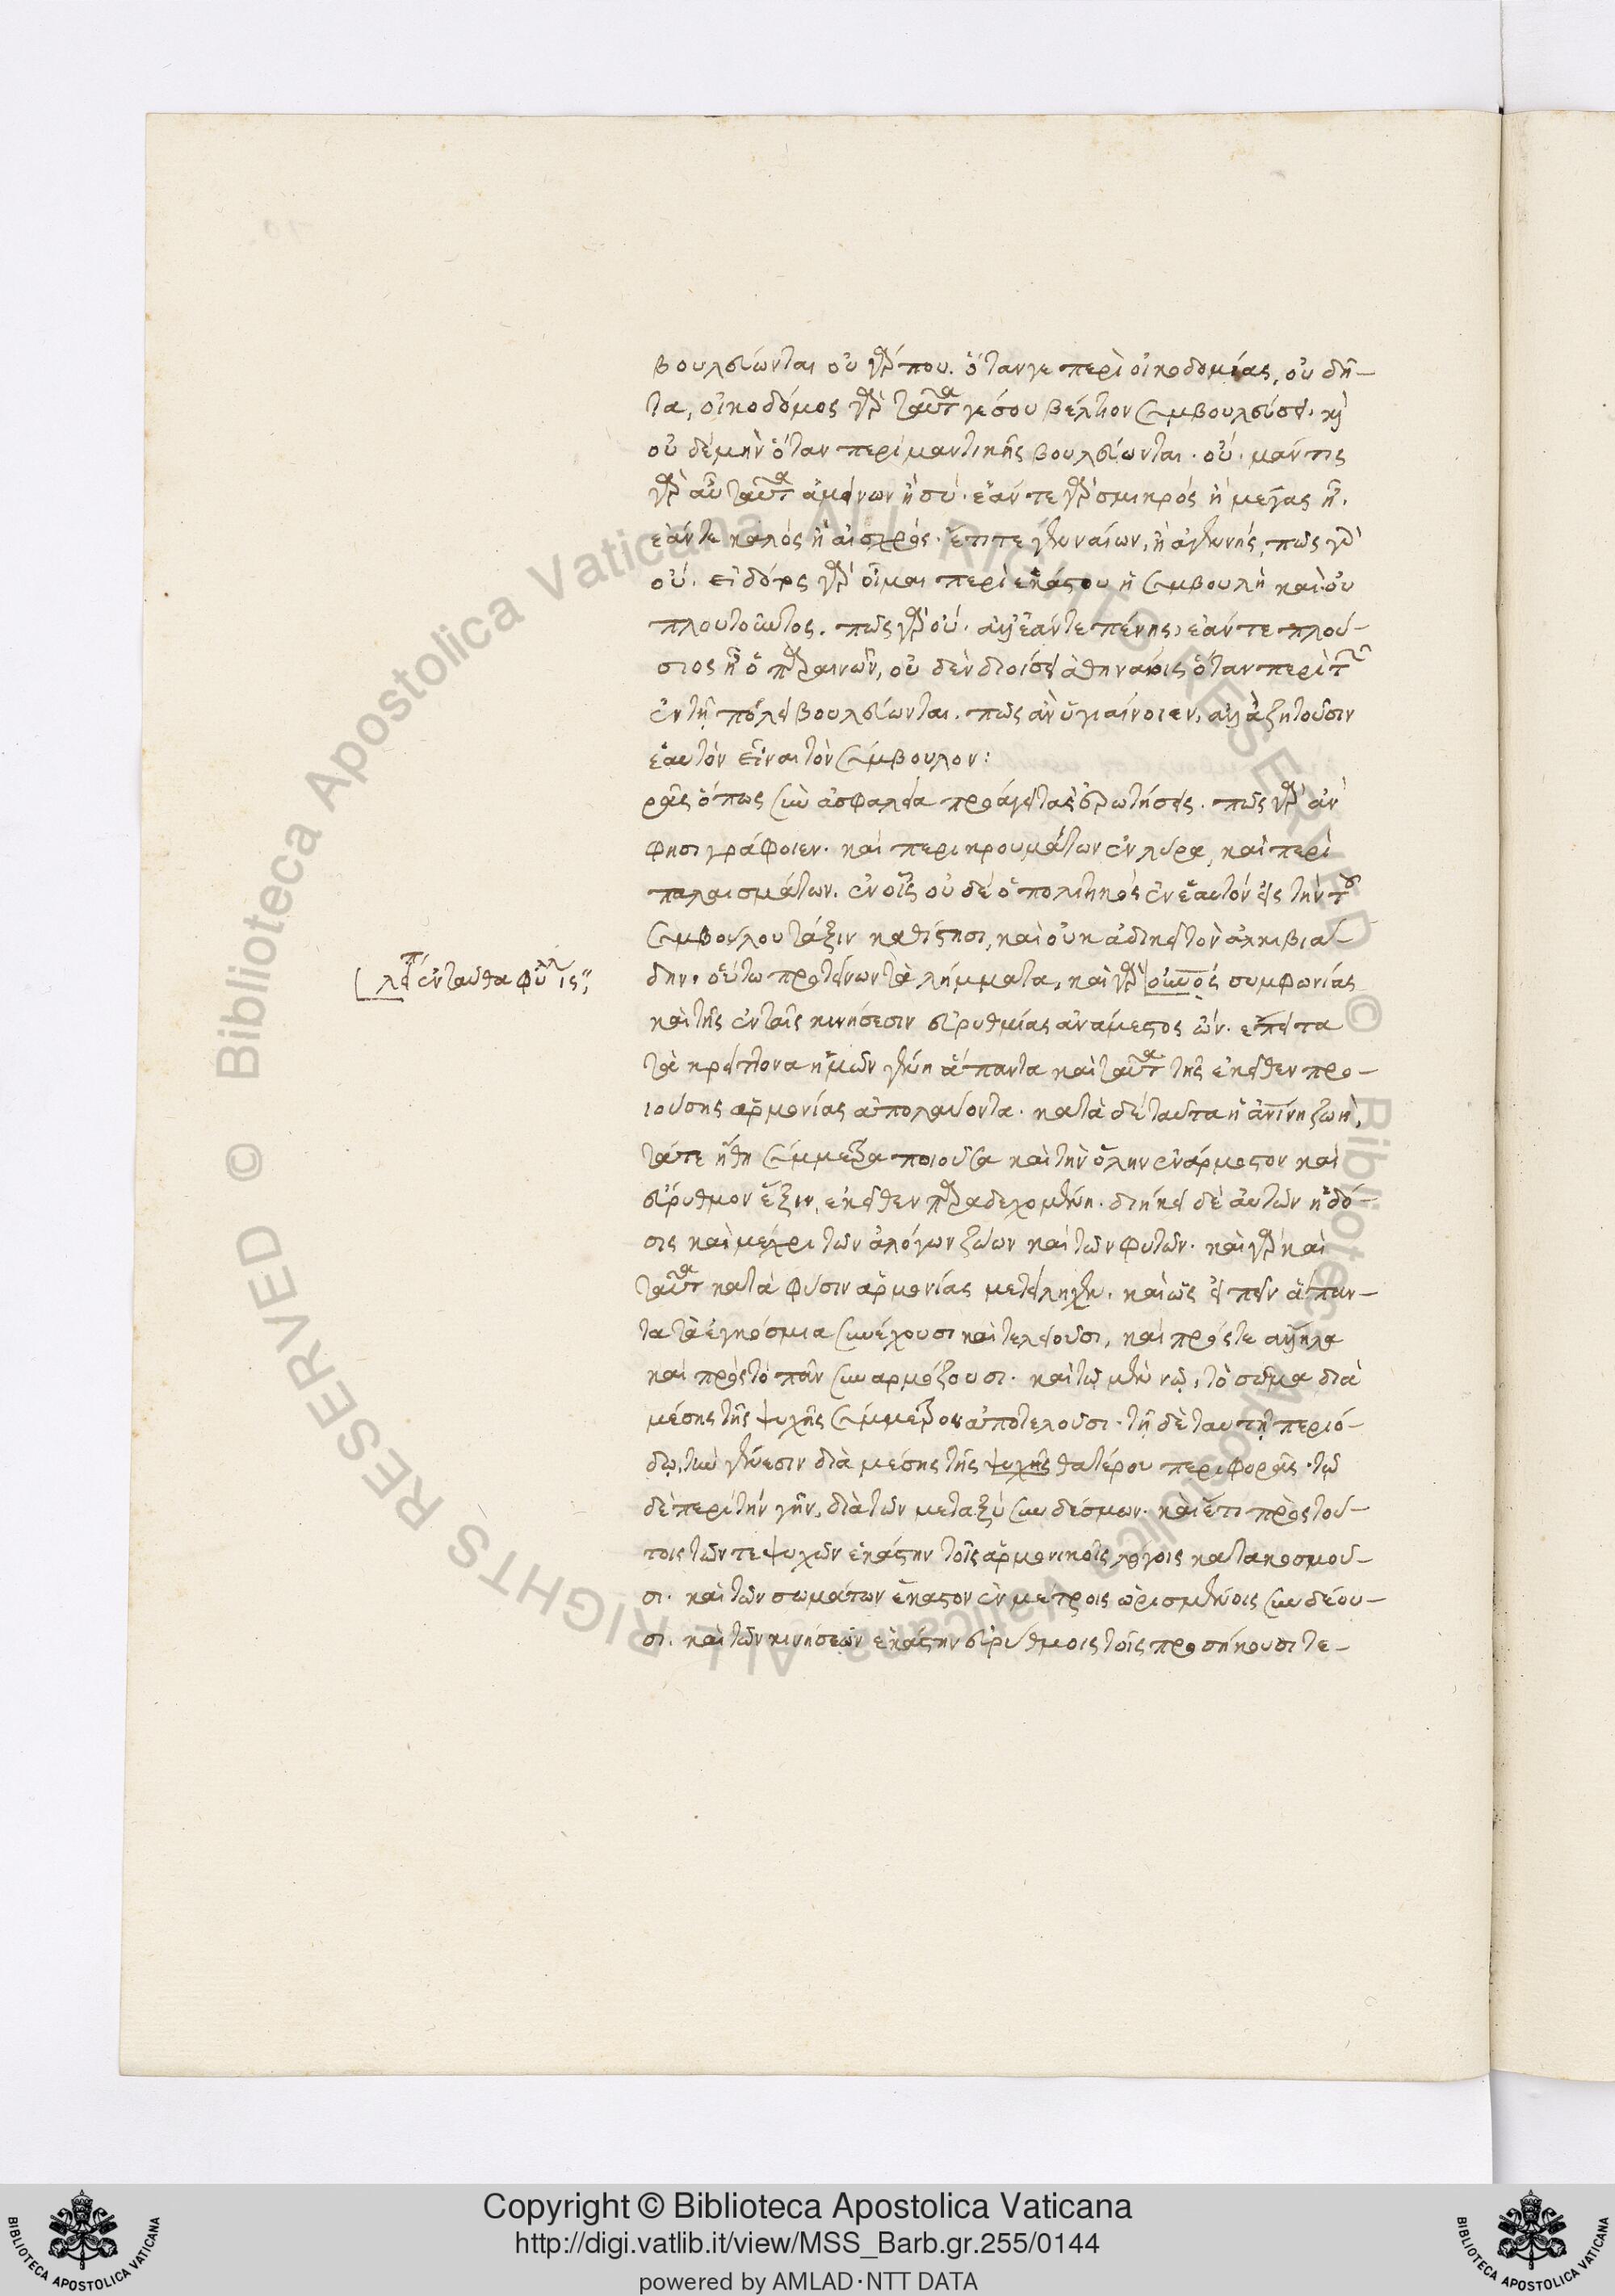 βουλεύωνται οὐ γάρ που. ὅταν γε περὶ οἰκοδομίας, οὐ δῆ-
τα, οἰκοδόμος γὰρ ταῦτα γε σου βέλτιον συμβουλεύσει. καὶ
οὐ δὲ μὴν ὅταν περὶ μαντικῆς βουλεύωνται. οὐ. μάντις
γὰρ αὖ ταῦτα ἀμείνων ἢ σύ. ἐάν τε γὰρ σμικρός ἢ μέγας ᾖ.
ἐάν τε καλός ἢ αἰσχρός. ἔτι τε γενναίων, ἢ ἀγεννής, πῶς γὰρ
οὔ. εἰδότος γὰρ οἶμαι περὶ ἑκάστου ἡ συμβουλὴ καὶ οὐ
πλουτοῦντος. πῶς γὰρ οὔ. ἀλλ' ἐάν τε πένης, ἐάν τε πλού-
σιος ᾖ ὁ παραινῶν, οὐδὲν διοίσει ἀθηναίοις ὅταν περὶ τῶν
ἐν τῇ πόλει βουλεύωνται. πῶς ἂν ὑγιαίνοιεν, ἀλλὰ ζητοῦσιν
ἑαυτὸν εἶναι τὸν σύμβουλον:
ρᾷς ὅπως σὺν ἀσφαλείᾳ προάγει τὰς ἐρωτήσεις. πῶς γὰρ ἄν
φησι γράφοιεν. καὶ περὶ κρουμάτων ἐν λύρᾳ, καὶ περὶ
παλαισμάτων. ἐν οἷς οὐδὲ ὁ πολιτικός ἐν ἑαυτόν εἰς τὴν τοῦ
συμβούλου τάξιν καθίστησι, καὶ οὐκ ἀδικεῖ τὸν ἀλκιβιά-
λείπει ἐνταῦθα φύλλα ις
δην. οὕτω προτείνων τὰ λήμματα, καὶ γὰρ οὐρανὸς συμφωνίας
καὶ τῆς ἐν ταῖς κινήσεσιν εὐρυθμίας ἀνάμεστος ὤν. ἔπειτα
τὰ κρείττονα ἡμῶν γένη ἅπαντα καὶ ταῦτα τῆς ἐκεῖθεν προ-
ιούσης ἁρμονίας ἀπολαύοντα. κατὰ δὲ ταῦτα ἡ ἀνίνη ζωὴ,
τάτε ἤθη σύμμετρα ποιοῦσα καὶ τὴν ὅλην ἐνάρμοστον καὶ
εὔρυθμον ἕξιν, ἐκεῖθεν παραδεχομένη. διήκει δὲ αὐτῶν ἡ δό-
σις καὶ μέχρι τῶν ἀλόγων ζώων καὶ τῶν φυτῶν. καὶ γὰρ καὶ
ταῦτα κατὰ φύσιν ἁρμονίας μετείληχεν. καὶ ὡς εἰπεῖν ἅπαν-
τα τὰ ἐγκόσμια συνέχουσι καὶ τελειοῦσι, καὶ πρός τε ἄλληλα
καὶ πρὸς τὸ πᾶν συναρμόζουσι. καὶ τῷ μὲν νῷ, τὸ σῶμα διὰ
μέσης τῆς ψυχῆς σύμμετρον ἀποτελοῦσι. τῇ δὲ ταυτῇ περιό-
δῳ, τὴν γένεσιν διὰ μέσης τῆς ψυχῆς θατέρου περιφορᾶς. τῷ
δὲ περὶ τὴν γῆν, διὰ τῶν μεταξὺ συνδέσμων. καὶ ἔτι πρὸς τού-
τοις τῶν τε ψυχῶν ἑκάστην τοῖς ἁρμονικοῖς λόγοις κατακοσμοῦ-
σι. καὶ τῶν σωμάτων ἕκαστον ἐν μέτροις ὡρισμένοις συνδέου-
σι. καὶ τῶν κινήσεων ἑκάστην εὐρύθμοις τοῖς προσήκουσι τε-
Copyright © Biblioteca Apostolica Vaticana
http://digi.vatlib.it/view/MSS_Barb.gr.255/0144
powered by AMLAD·NTT DATA